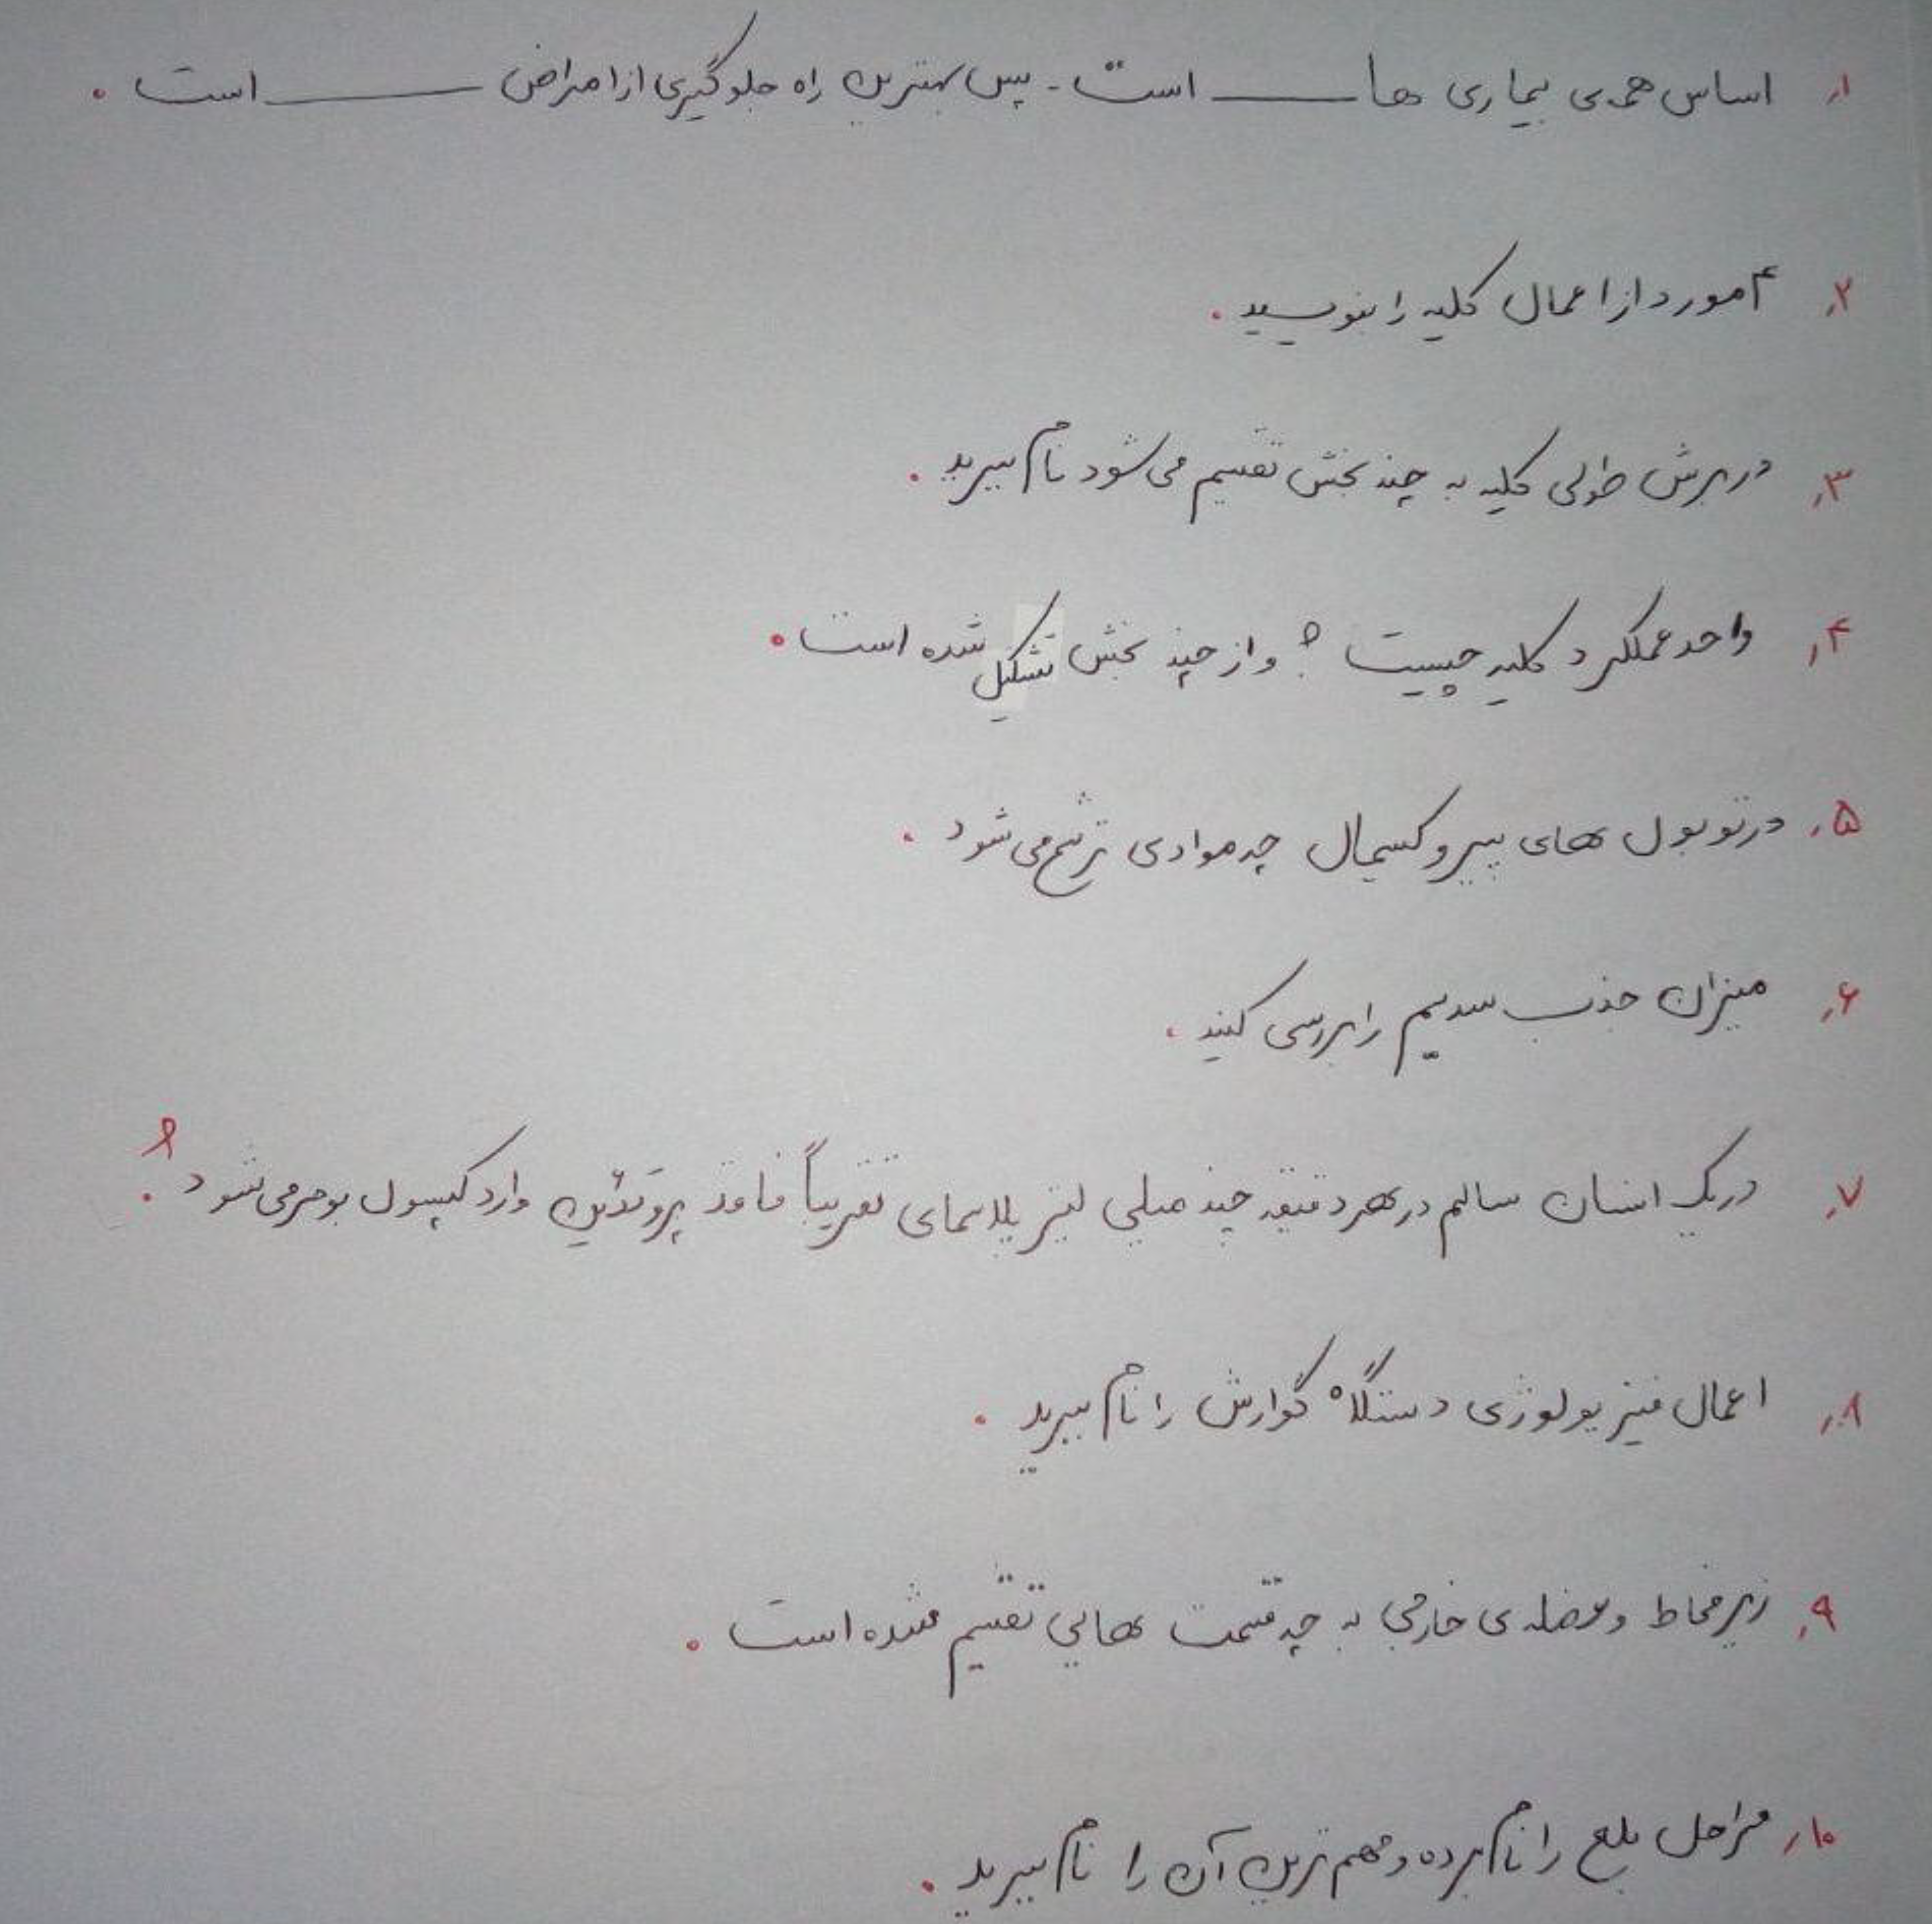 ۱. اساس همه‌ی بیماری ها ــــــــ است. پس بهترین راه جلوگیری از امراض ــــــــ است.
۲. ۴ مورد از اعمال کلیه را بنویسید.
۳. در برش طولی کلیه به چند بخش تقسیم می شود نام ببرید.
۴. واحد عملکرد کلیه چیست؟ و از چند بخش تشکیل شده است.
۵. در توبول های پیروکسیمال چه موادی ترشح می شود.
۶. میزان جذب سدیم را بررسی کنید.
۷. در یک انسان سالم در هر دقیقه چند میلی لیتر پلاسمای تقریباً فاقد پروتئین وارد کپسول بومن می شود؟
۸. اعمال فیزیولوژی دستگاه گوارش را نام ببرید.
۹. زیر مخاط و عضله ی خارجی به چه قسمت هایی تقسیم شده است.
۱۰. مراحل بلع را نام برده و مهم ترین آن را نام ببرید.